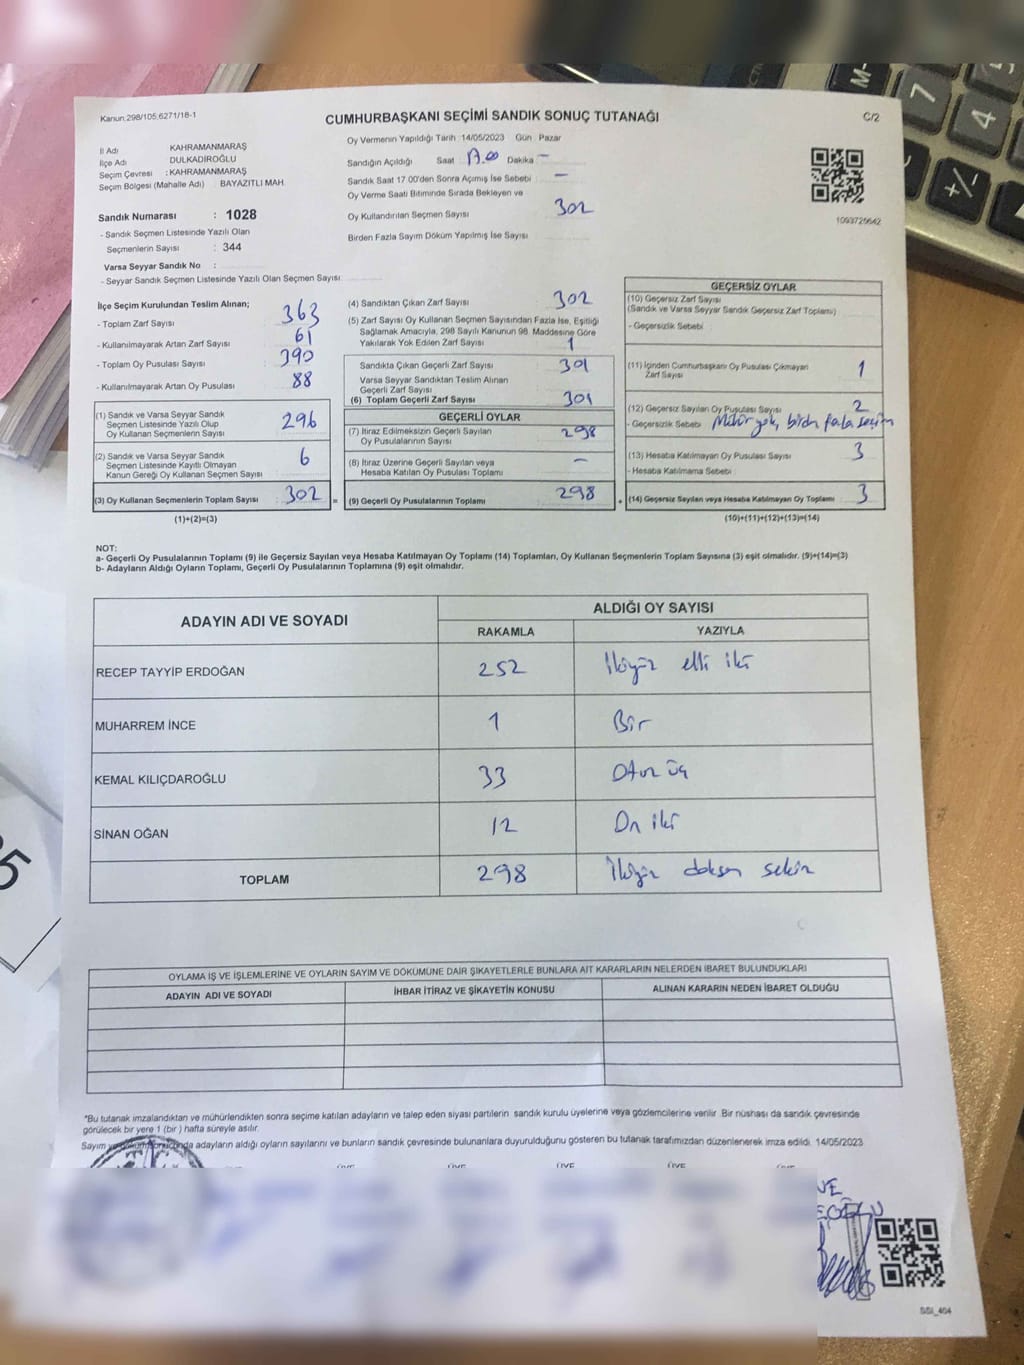 Kanun:298/105,6271/18-1
CUMHURBAŞKANI SEÇİMİ SANDIK SONUÇ TUTANAĞI
C/2
İl Adı KAHRAMANMARAŞ
İlçe Adı DULKADİROĞLU
Seçim Çevresi : KAHRAMANMARAŞ
Seçim Bölgesi (Mahalle Adı) BAYAZITLI MAH.
Sandık Numarası : 1028
- Sandık Seçmen Listesinde Yazılı Olan
Seçmenlerin Sayısı : 344
Varsa Seyyar Sandık No :
- Seyyar Sandık Seçmen Listesinde Yazılı Olan Seçmen Sayısı:
Oy Vermenin Yapıldığı Tarih :14/05/2023 Gün : Pazar
Sandığın Açıldığı Saat : 17.00 Dakika –
Sandık Saat 17.00'den Sonra Açımış İse Sebebi –
Oy Verme Saati Bitiminde Sırada Bekleyen ve
Oy Kullandırılan Seçmen Sayısı 302
Birden Fazla Sayım Döküm Yapılmış İse Sayısı
1093726642
İlçe Seçim Kurulundan Teslim Alınan;
- Toplam Zarf Sayısı 363
- Kullanılmayarak Artan Zarf Sayısı 61
- Toplam Oy Pusulası Sayısı 390
- Kullanılmayarak Artan Oy Pusulası 88
(1) Sandık ve Varsa Seyyar Sandık
Seçmen Listesinde Yazılı Olup
Oy Kullanan Seçmenlerin Sayısı 296
(2) Sandık ve Varsa Seyyar Sandık
Seçmen Listesinde Kayıtlı Olmayan
Kanun Gereği Oy Kullanan Seçmen Sayısı 6
(3) Oy Kullanan Seçmenlerin Toplam Sayısı 302 =
(1)+(2)=(3)
(4) Sandıktan Çıkan Zarf Sayısı 302
(5) Zarf Sayısı Oy Kullanan Seçmen Sayısından Fazla İse, Eşitliği
Sağlamak Amacıyla, 298 Sayılı Kanunun 98. Maddesine Göre
Yakılarak Yok Edilen Zarf Sayısı 1
Sandıkta Çıkan Geçerli Zarf Sayısı 301
Varsa Seyyar Sandıktan Teslim Alınan
Geçerli Zarf Sayısı
(6) Toplam Geçerli Zarf Sayısı 301
GEÇERLİ OYLAR
(7) İtiraz Edilmeksizin Geçerli Sayılan
Oy Pusulalarının Sayısı 298
(8) İtiraz Üzerine Geçerli Sayılan veya
Hesaba Katılan Oy Pusulası Toplamı –
(9) Geçerli Oy Pusulalarının Toplamı 298 +
GEÇERSİZ OYLAR
(10) Geçersiz Zarf Sayısı
(Sandık ve Varsa Seyyar Sandık Geçersiz Zarf Toplamı)
- Geçersizlik Sebebi
(11) İçinden Cumhurbaşkanı Oy Pusulası Çıkmayan
Zarf Sayısı 1
(12) Geçersiz Sayılan Oy Pusulası Sayısı 2
- Geçersizlik Sebebi Mühür yok, birden fazla seçim
(13) Hesaba Katılmayan Oy Pusulası Sayısı 3
- Hesaba Katılmama Sebebi :
(14) Geçersiz Sayılan veya Hesaba Katılmayan Oy Toplamı 3
(10)+(11)+(12)+(13)=(14)
NOT:
a- Geçerli Oy Pusulalarının Toplamı (9) ile Geçersiz Sayılan veya Hesaba Katılmayan Oy Toplamı (14) Toplamları, Oy Kullanan Seçmenlerin Toplam Sayısına (3) eşit olmalıdır. (9)+(14)=(3)
b- Adayların Aldığı Oyların Toplamı, Geçerli Oy Pusulalarının Toplamına (9) eşit olmalıdır.
ADAYIN ADI VE SOYADI
ALDIĞI OY SAYISI
RAKAMLA YAZIYLA
RECEP TAYYİP ERDOĞAN 252 İkiyüz elli iki
MUHARREM İNCE 1 Bir
KEMAL KILIÇDAROĞLU 33 Otuz üç
SİNAN OĞAN 12 On iki
TOPLAM 298 İkiyüz doksan sekiz
OYLAMA İŞ VE İŞLEMLERİNE VE OYLARIN SAYIM VE DÖKÜMÜNE DAİR ŞİKAYETLERLE BUNLARA AİT KARARLARIN NELERDEN İBARET BULUNDUKLARI
ADAYIN ADI VE SOYADI İHBAR İTİRAZ VE ŞİKAYETİN KONUSU ALINAN KARARIN NEDEN İBARET OLDUĞU
*Bu tutanak imzalandıktan ve mühürlendikten sonra seçime katılan adayların ve talep eden siyasi partilerin sandık kurulu üyelerine veya gözlemcilerine verilir. Bir nüshası da sandık çevresinde
görülecek bir yere 1 (bir ) hafta süreyle asılır.
adayların aldığı oyların sayılarını ve bunların sandık çevresinde bulunanlara duyurulduğunu gösteren bu tutanak tarafımızdan düzenlenerek imza edildi. 14/05/2023
SSI_404
M-
7
4
+/-